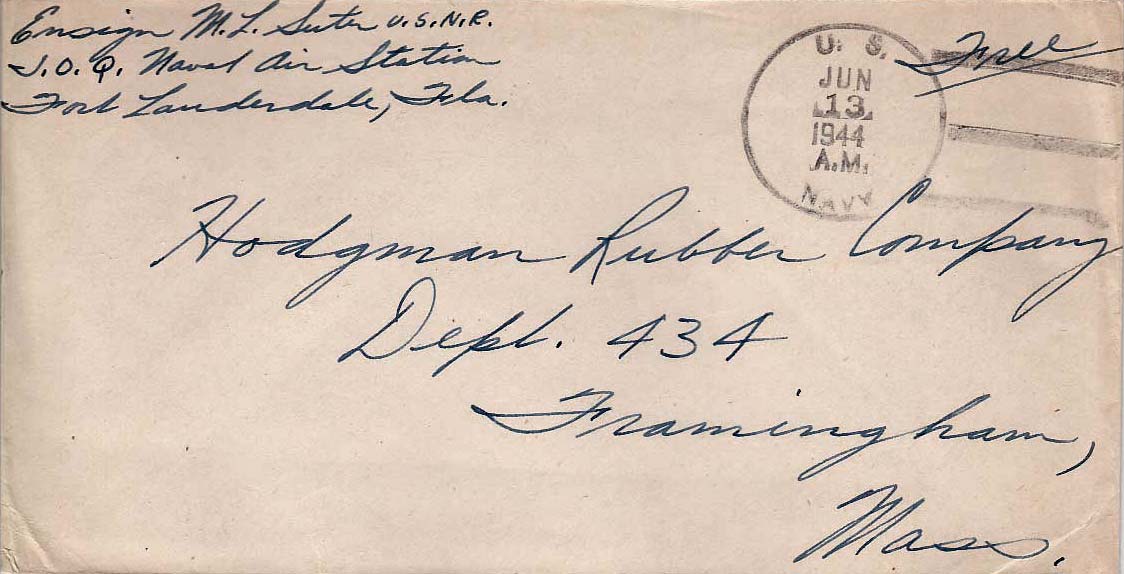 Ensign M. L. Suter U.S.N.R.
J.O.Q. Naval Air Station
Fort Lauderdale, Fla.
U. S.
JUN
13
1944
A.M.
NAVY
Free
Hodgman Rubber Company
Dept. 434
Framingham,
Mass.